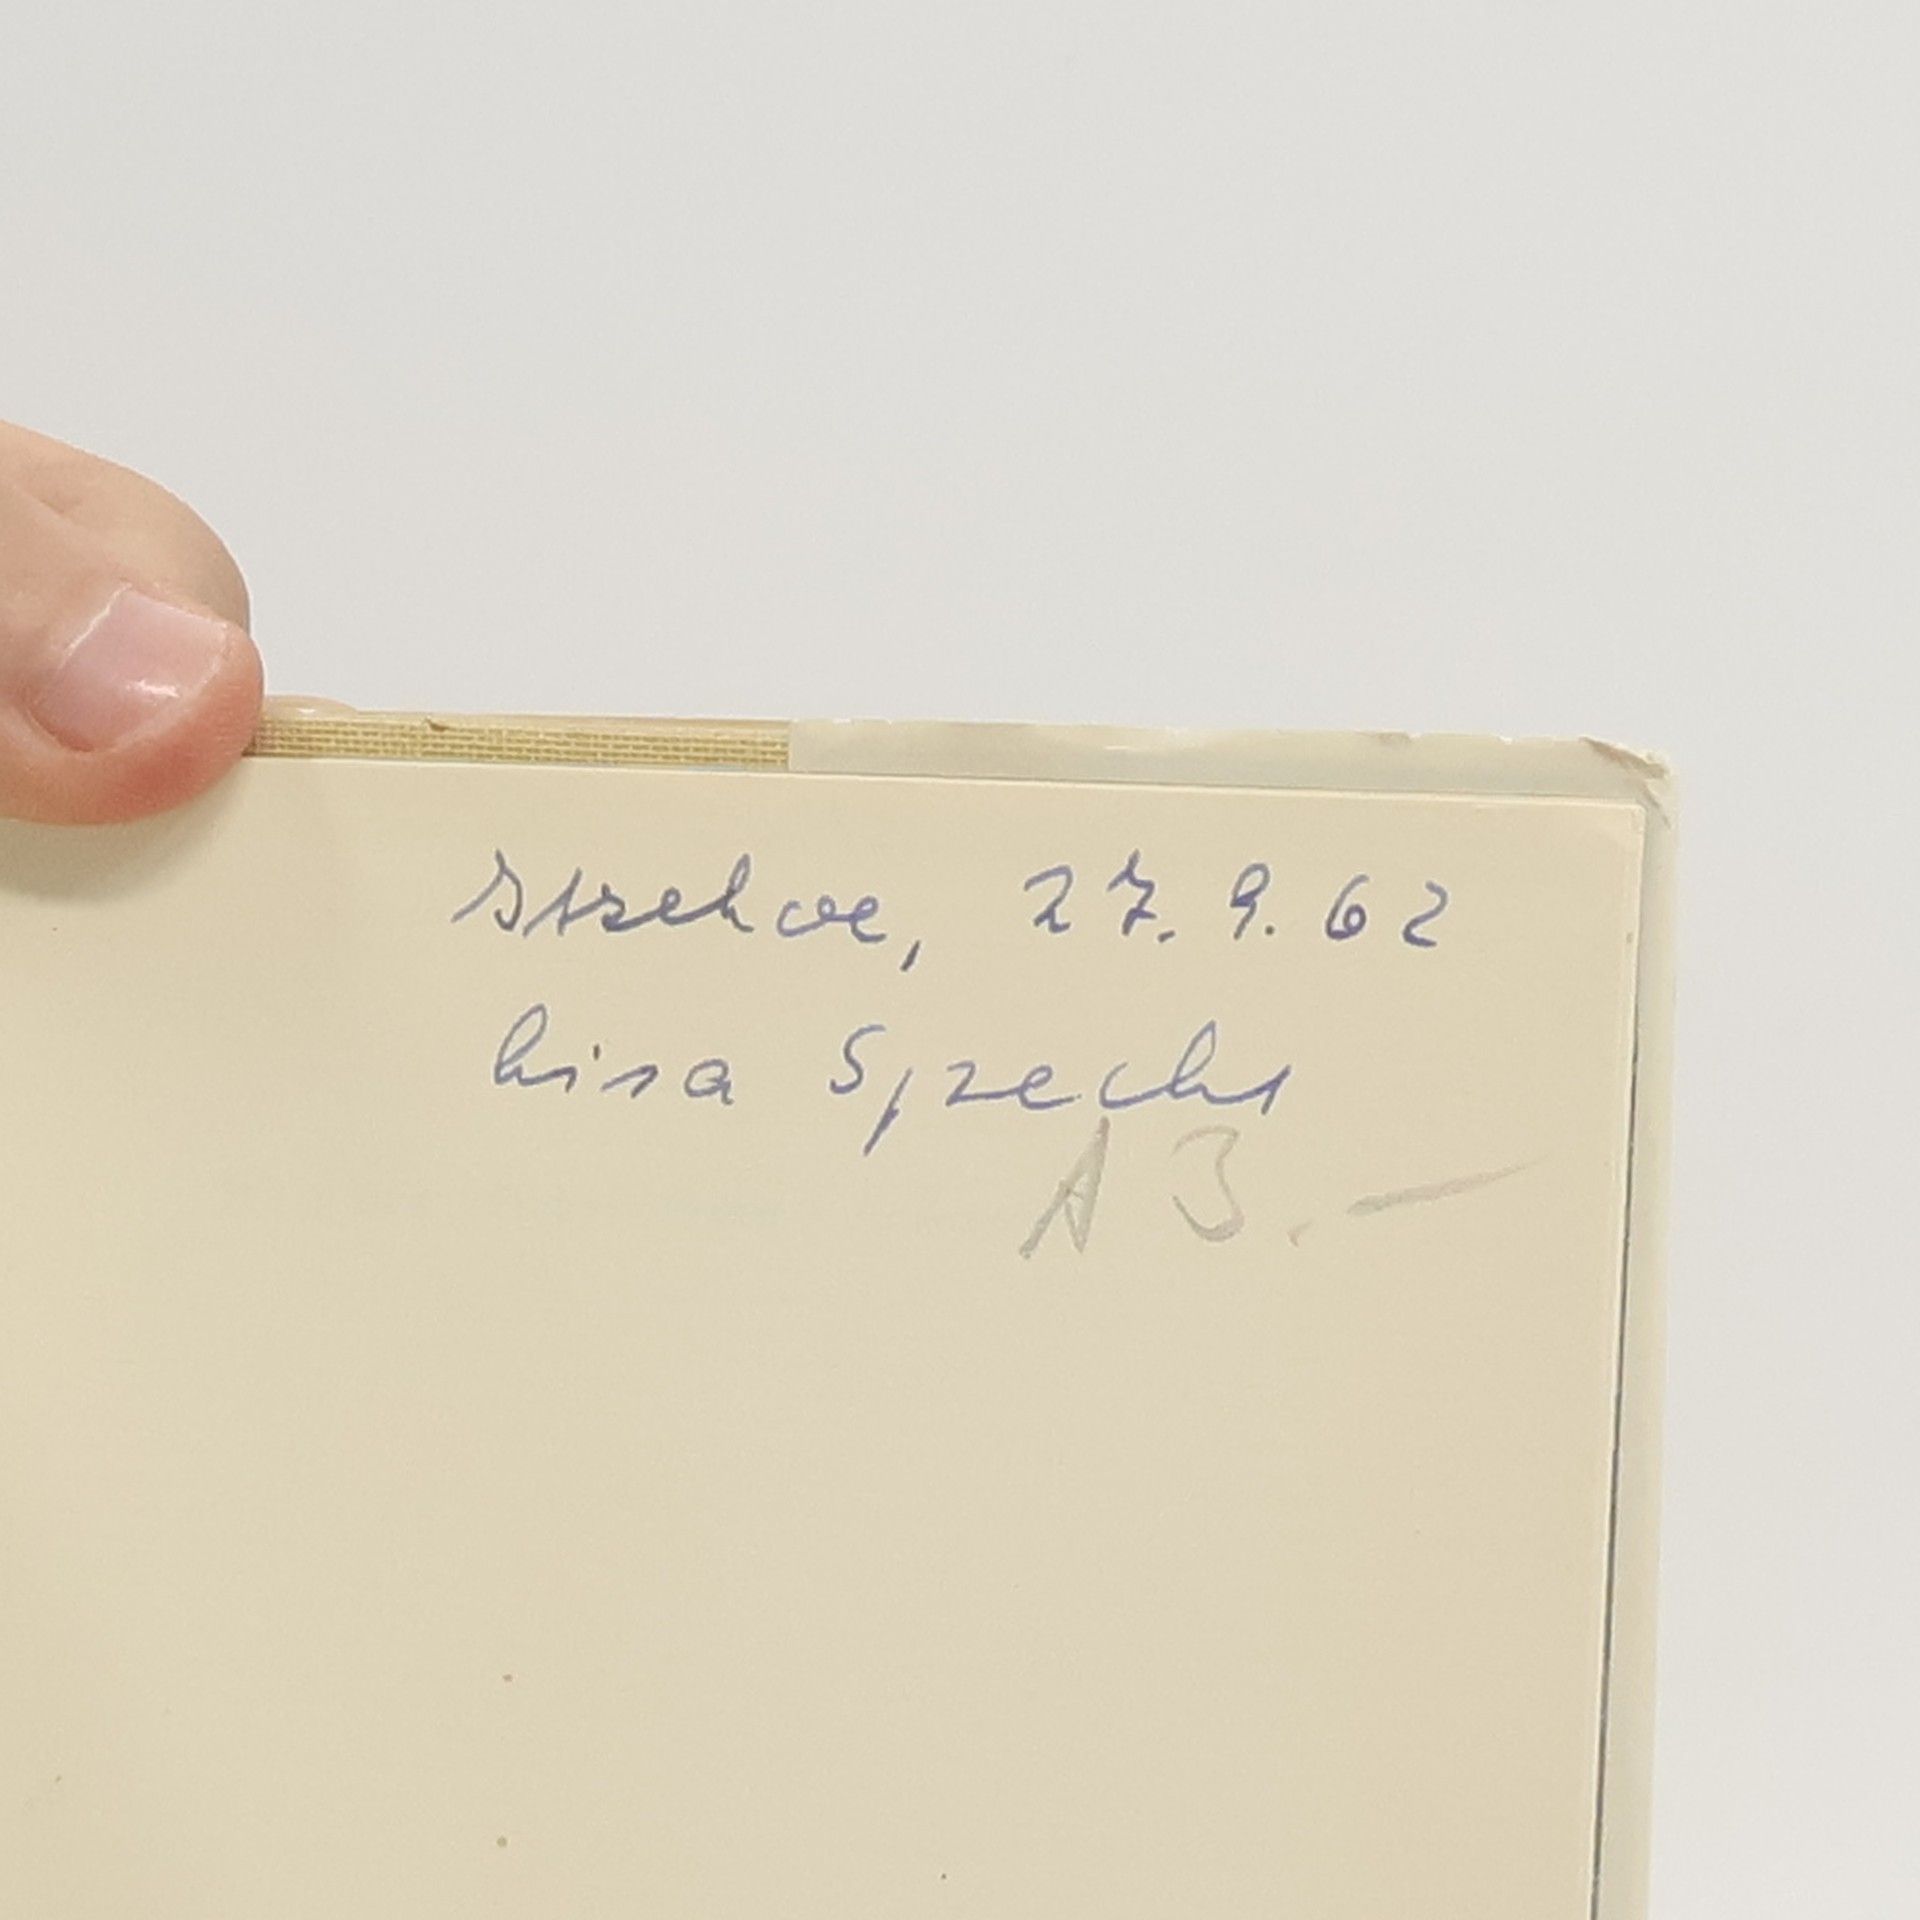 Itzehoe, 27. 9. 62
Lisa Specht
A 3.-